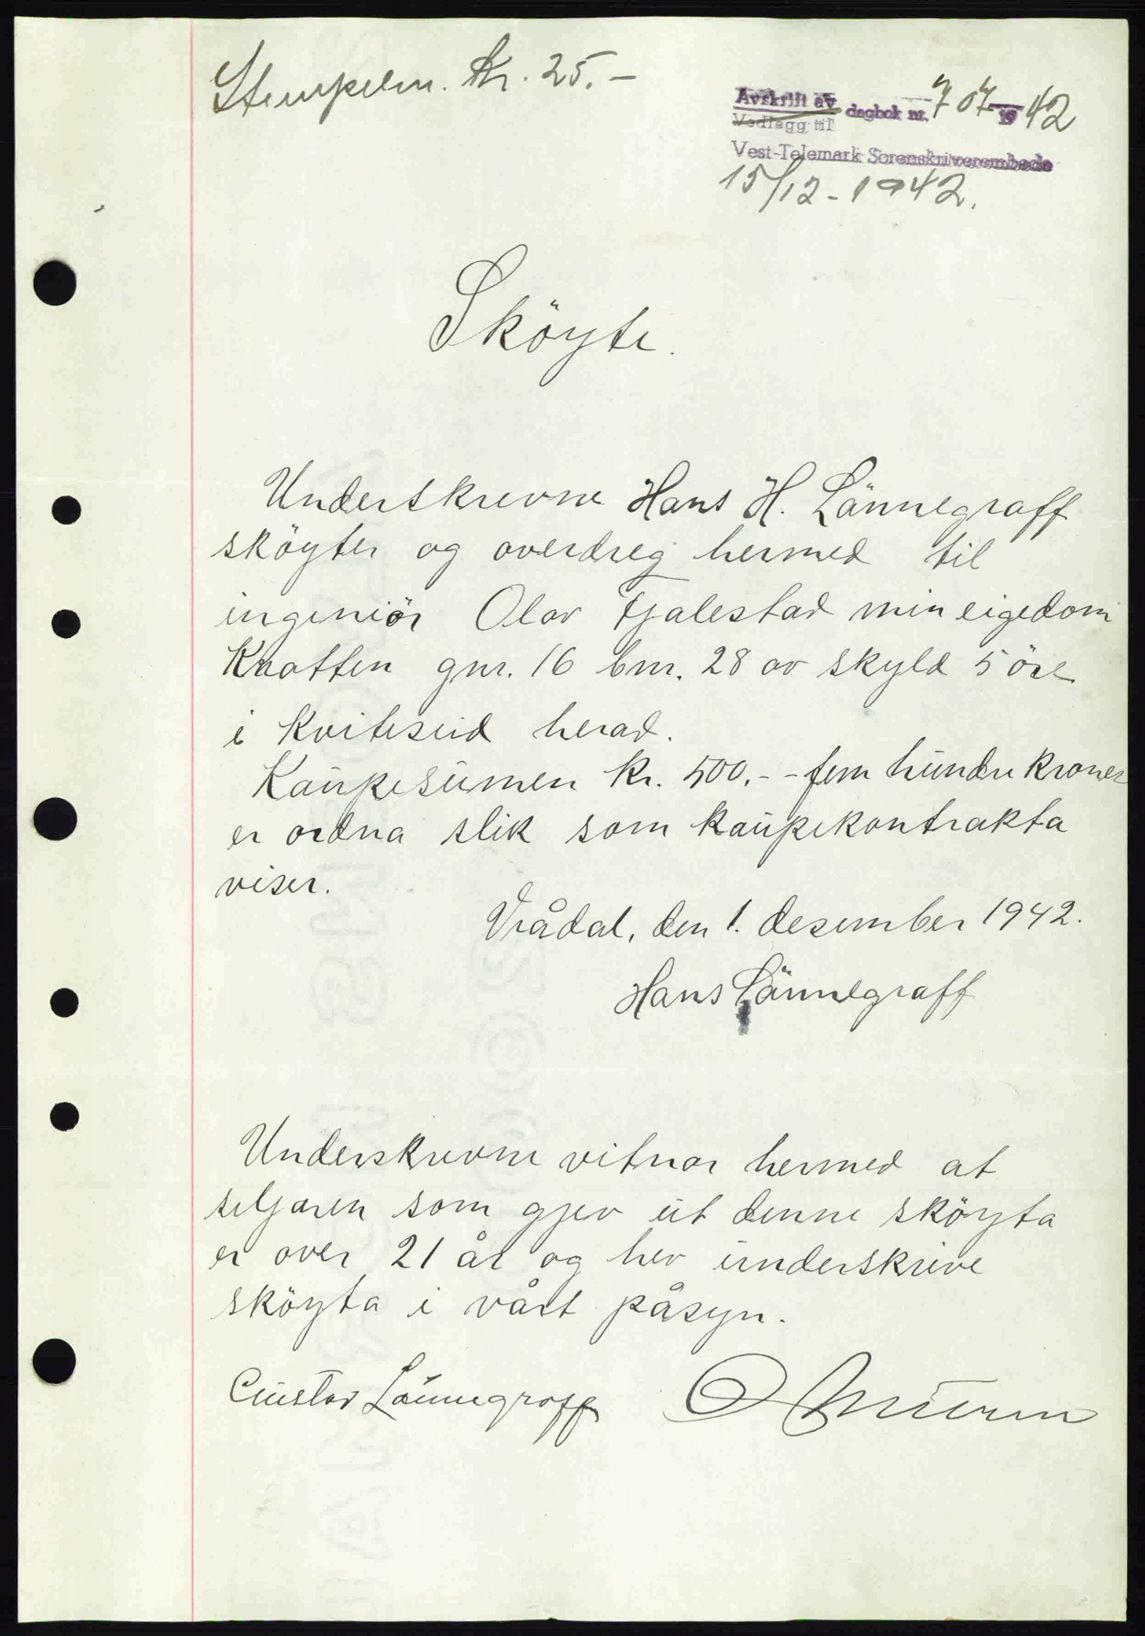 Stempelm. Kr. 25.-
Avskrift av
Vedlegg til dagbok nr. 707 19 42
Vest-Telemark Sorenskriverembede
15/12-1942.
Sköyte.
Underskrevne Hans H. Lännegraff
sköyter og overdreg hermed til
ingeniör Olav Fjalestad min eigedom
Knatten gnr. 16 bnr. 28 av skyld 5 öre
i Kviteseid herad.
Kaupesumen kr. 500.- - fem hundre kroner
er ordna slik som kaupekontrakta
viser.
Vrådal, den 1. desember 1942.
Hans Lännegraff
Underskrevne vitnar hermed at
seljaren som gjev ut denne sköyta
er over 21 år og hev underskrive
sköyta i vårt påsyn.
Gustav Lännegraff